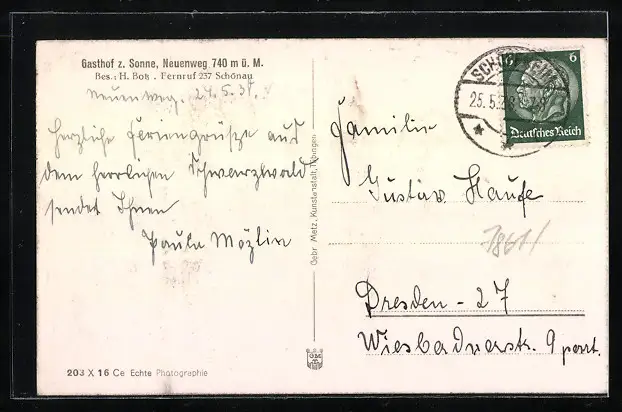 Gasthof z. Sonne, Neuenweg 740 m ü. M.
Bes.: H. Botz . Fernruf 237 Schönau
Neuenweg, 24.5.37.
Herzliche Feriengrüsze aus
dem herrlichen Schwarzwald
sendet Ihnen
Paula Mözlin
203 X 16 Ce Echte Photographie
Gebr. Metz, Kunstanstalt, Tübingen
GM
SCHÖNAU
25.5.
6
Deutsches Reich
Familie
Gustav Haufe
Dresden - 27
Wiesbadnerstr. 9 part.